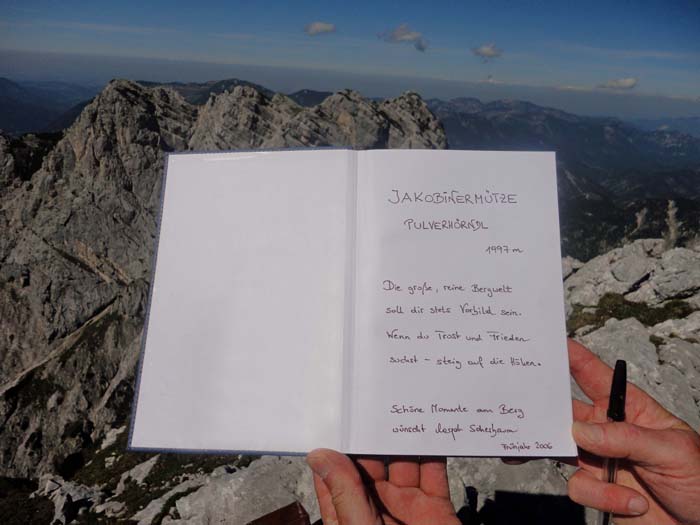 JAKOBINERMÜTZE
PULVERHÖRNDL
1997 m
Die große, reine Bergwelt
soll dir stets Vorbild sein.
Wenn du Trost und Frieden
suchst - steig auf die Höhen.
Schöne Momente am Berg
wünscht
Frühjahr 2006